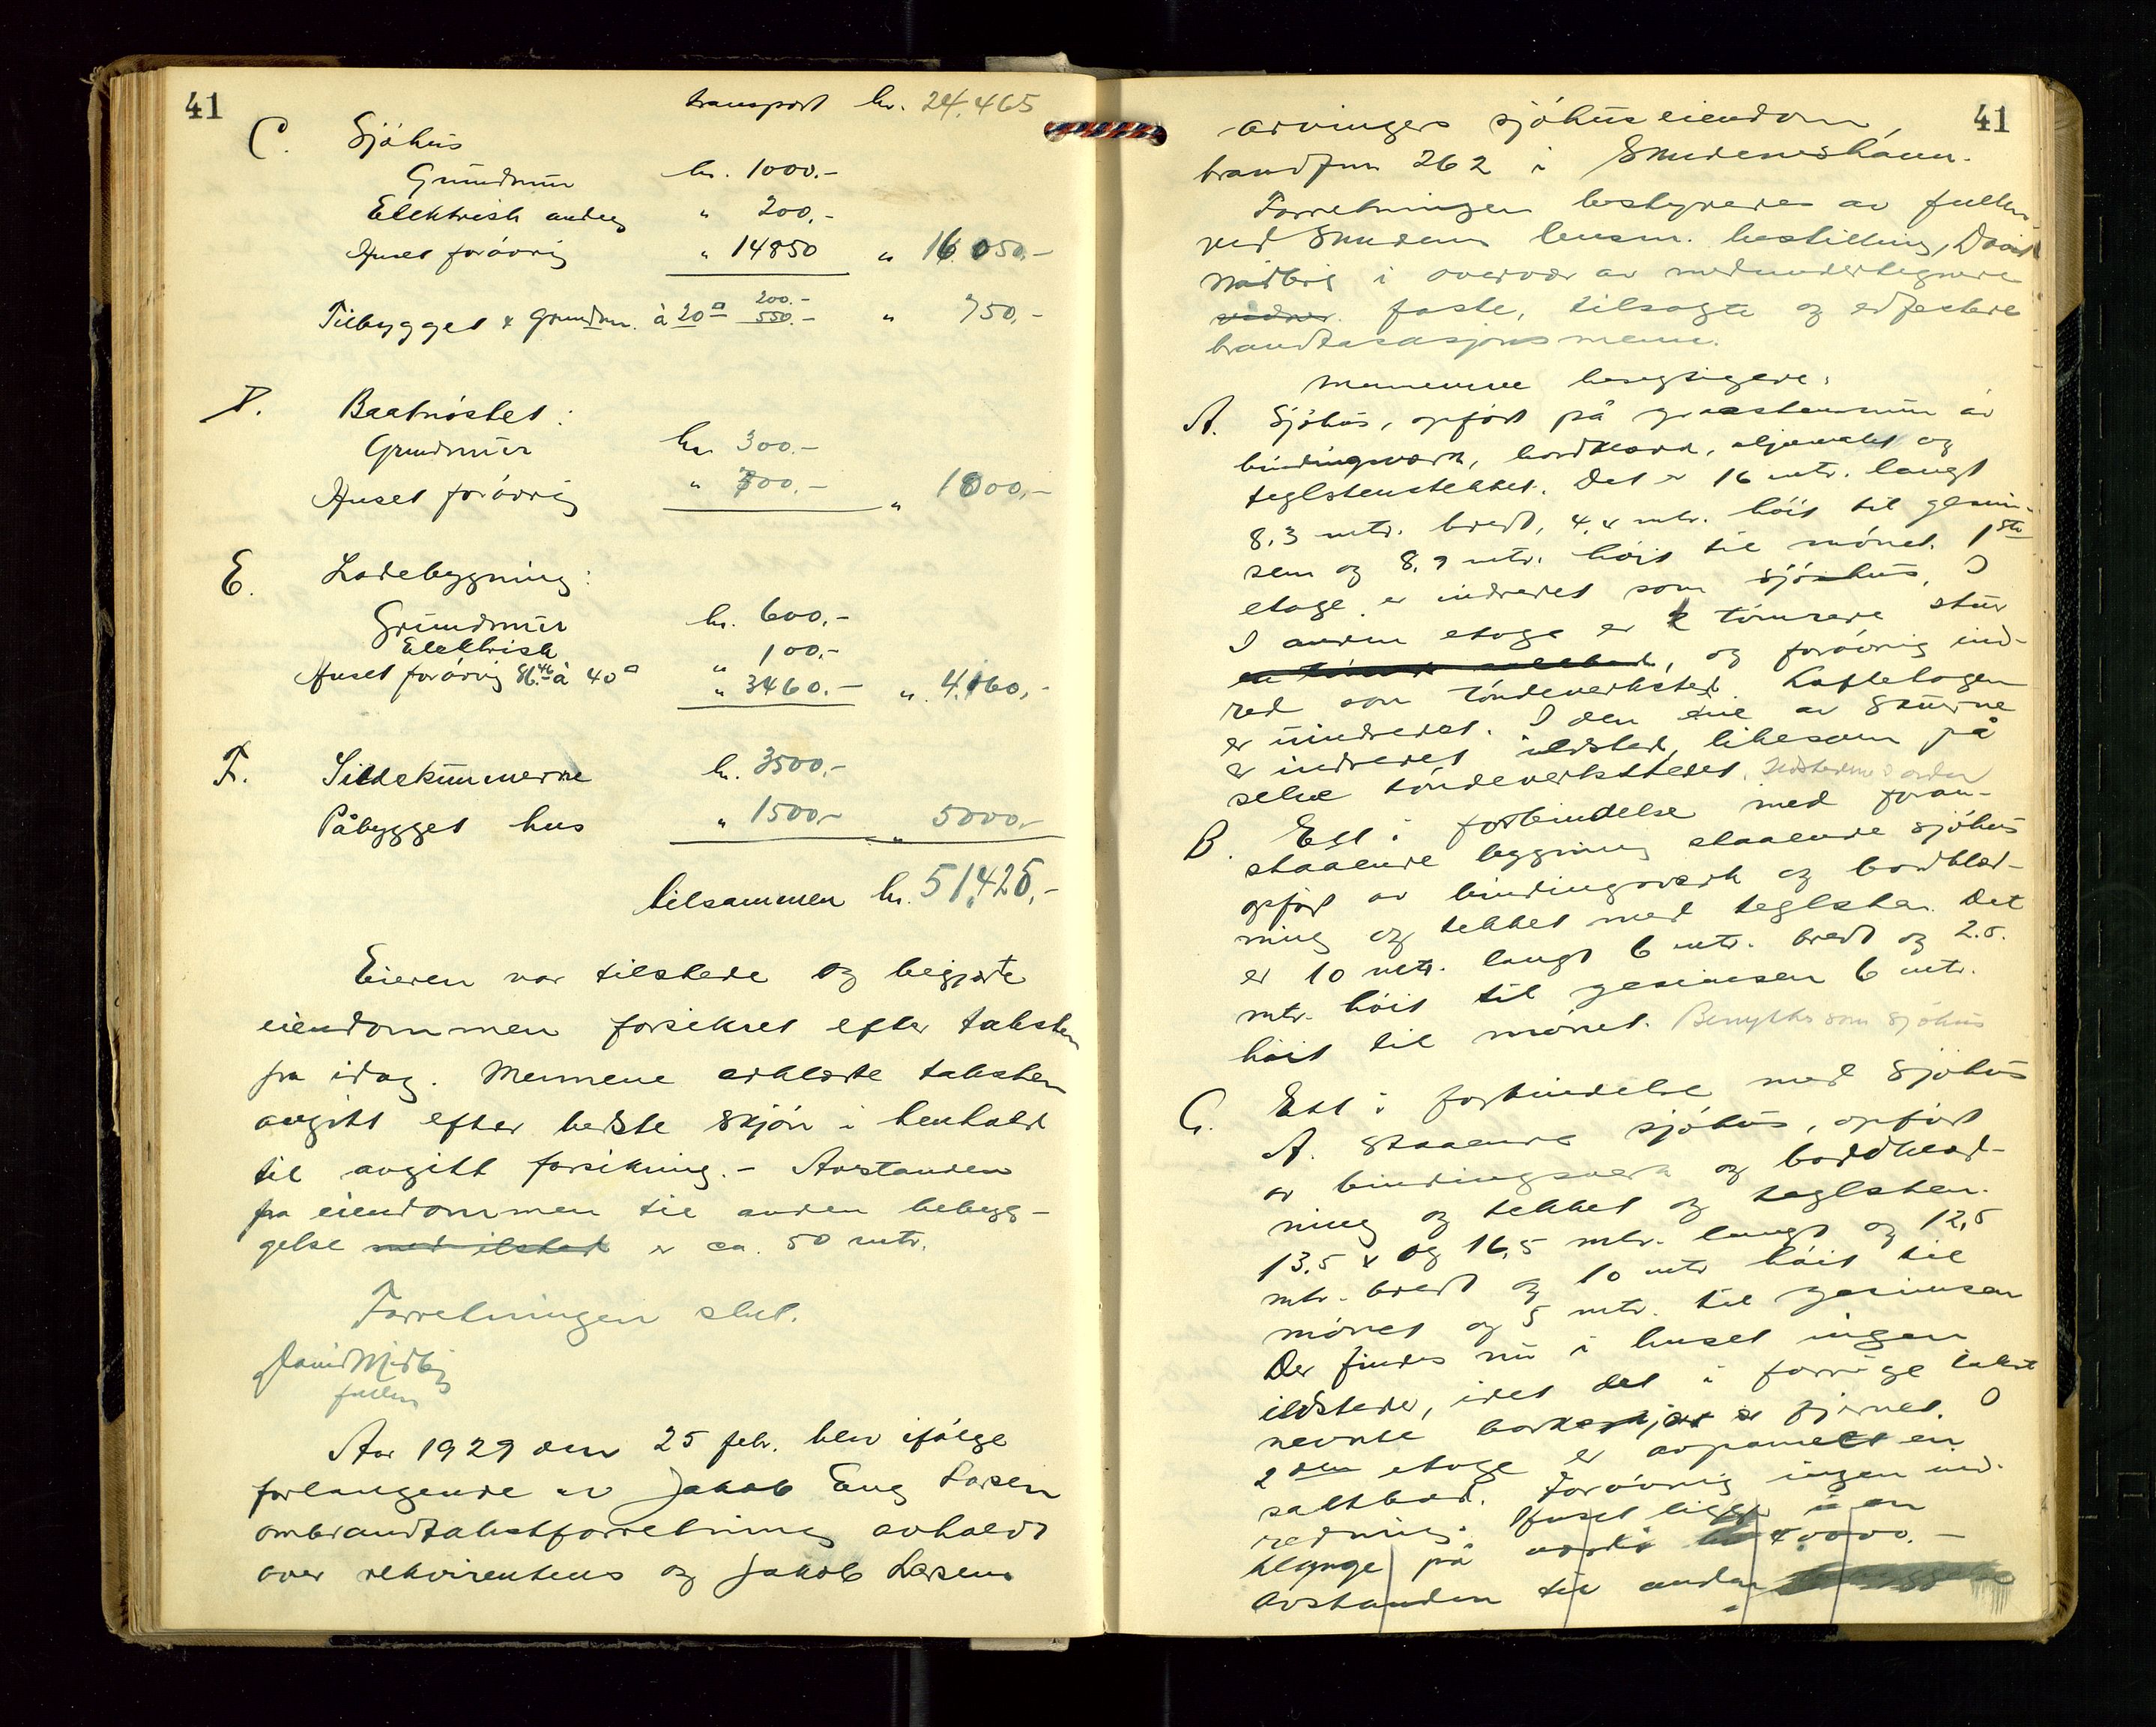 41
transport kr. 24.465
C. Sjöhus
Grundmur kr. 1000.-
Elektrisk anlæg " 200,-
Huset forövrig " 14850 " 16.050,-
Tilbygget x Grundm. à 20 200.- 550.- " 750,-
D. Baatnöstet:
Grundmur kr 300.-
Huset forövrig " 700.- " 1000,-
E. Ladebygning:
Grundmur kr. 600,-
Elektrisk " 100.-
Huset forövrig 86.46 à 40 " 3460.- " 4.160,-
F. Sildekummerne kr. 3500,-
Påbygget hus " 1500,- " 5000,-
tilsammen kr. 51,425,-
Eieren var tilstede og begjærte
eiendommen forsikret efter taksten
fra idag. Mennene erklærte taksten
avgitt efter bedste skjön i henhold
til avgitt forsikring. - Avstanden
fra eiendommen til anden bebygg-
gelse med ilsted er ca. 50 mtr.
Forretningen slut.
David Medby
fullm
Aar 1929 den 25 feb. blev ifölge
forlangende av Jakob Eng Larsen
ombrandtakstforretning avholdt
over rekvirentens og Jakob Larsens
41
arvingers sjöhuseiendom,
brandfnr 262 i Skudeneshavn.
Forretningen bestyredes av fullm
ved Skudenes lensm. bestilling, David
Medbÿ i overvær av medundertegnede
vidner faste, tilsagte og edfestede
brandtaksasjonsmenn.
Mennene besigtigede:
A. Sjöhus, opfört på graastensmur av
bindingsverk, bordklædd, oljemalet og
teglstenstekket. Det er 16 mtr. langt
8.3 mtr. bredt, 4.4 mtr. höit til gesim-
sen og 8.9 mtr. höit til mönet. 1ste
etage er indredet som sjöhus. I
I anden etage er 2 tömrede stuer
, og forövrig ind-
red som töndeverksted. Loftetagen
er uindredet. I den ene av stuerne
er indredet ildsted, likesom på
selve töndeverkstedet. Ildstedene i orden
B. Ett i forbindelse med foran-
staaende bygning staaende sjöhus
opfört av bindingsverk og bordklæd-
ning og tekket med teglsten. Det
er 10 mtr. langt 6 mtr. bredt og 2.5.
mtr. höit til gesimsen 6 mtr.
höit til mönet. Benyttes som sjöhus
C. Ett i forbindelse med sjöhus
A. staaende sjöhus, opfört
av bindingsverk og bordklæd-
ning og tekket og teglsten.
13.5 x og 16,5 mtr. langt og 12,5
mtr. bredt og 10 mtr höit til
mönet og 5 mtr. til gesimsen
Der findes nu i huset ingen
ildsteder, idet det i forrige takst
nevnte er fjernet. I
2den etage er avpanelt en
saltbod. Forövrig ingen ind-
redning. Huset ligger i en
klynge på verdi kr 40000.-
Avstanden til anden bebyggelse